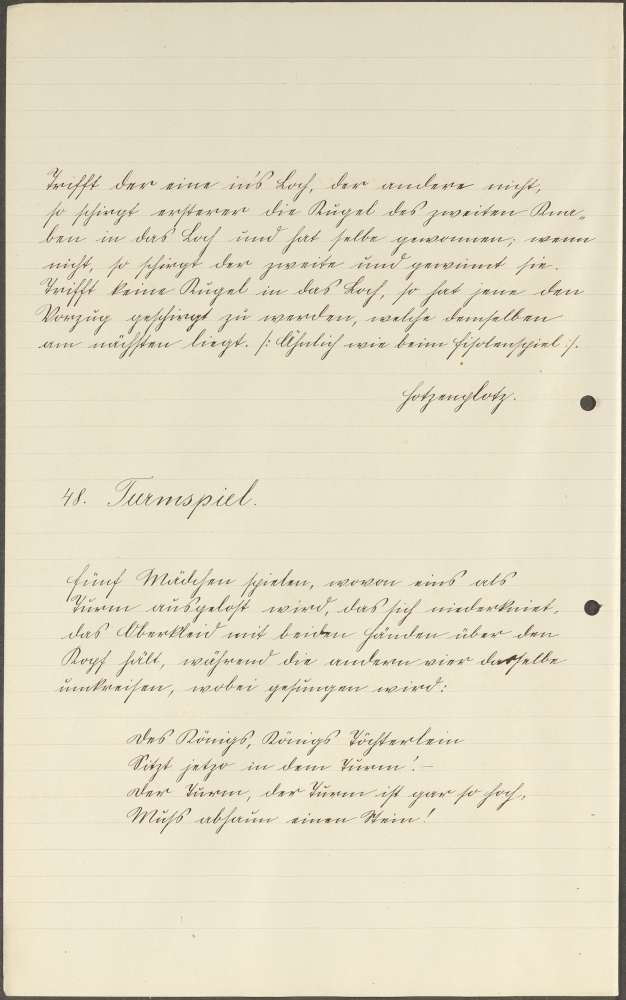 Trifft der eine in's Loch, der andere nicht,
so schirgt ersterer die Kugel des zweiten Kna-
ben in das Loch und hat selbe gewonnen; wenn
nicht, so schirgt der zweite und gewinnt sie.
Trifft keine Kugel in das Loch, so hat jene den
Vorzug geschirgt zu werden, welche demselben
am nächsten liegt. /: Ähnlich wie beim Fisolenspiel :/.
Hotzenplotz.
48. Turmspiel.
Fünf Mädchen spielen, wovon eins als
Turm ausgelost wird, das sich niederkniet,
das Oberkleid mit beiden Händen über den
Kopf hält, während die andern vier dasselbe
umkreisen, wobei gesungen wird:
Des Königs, Königs Töchterlein
Sitzt jetzo in dem Turm! –
Der Turm, der Turm ist gar so hoch,
Muss abhaun einen Stein!